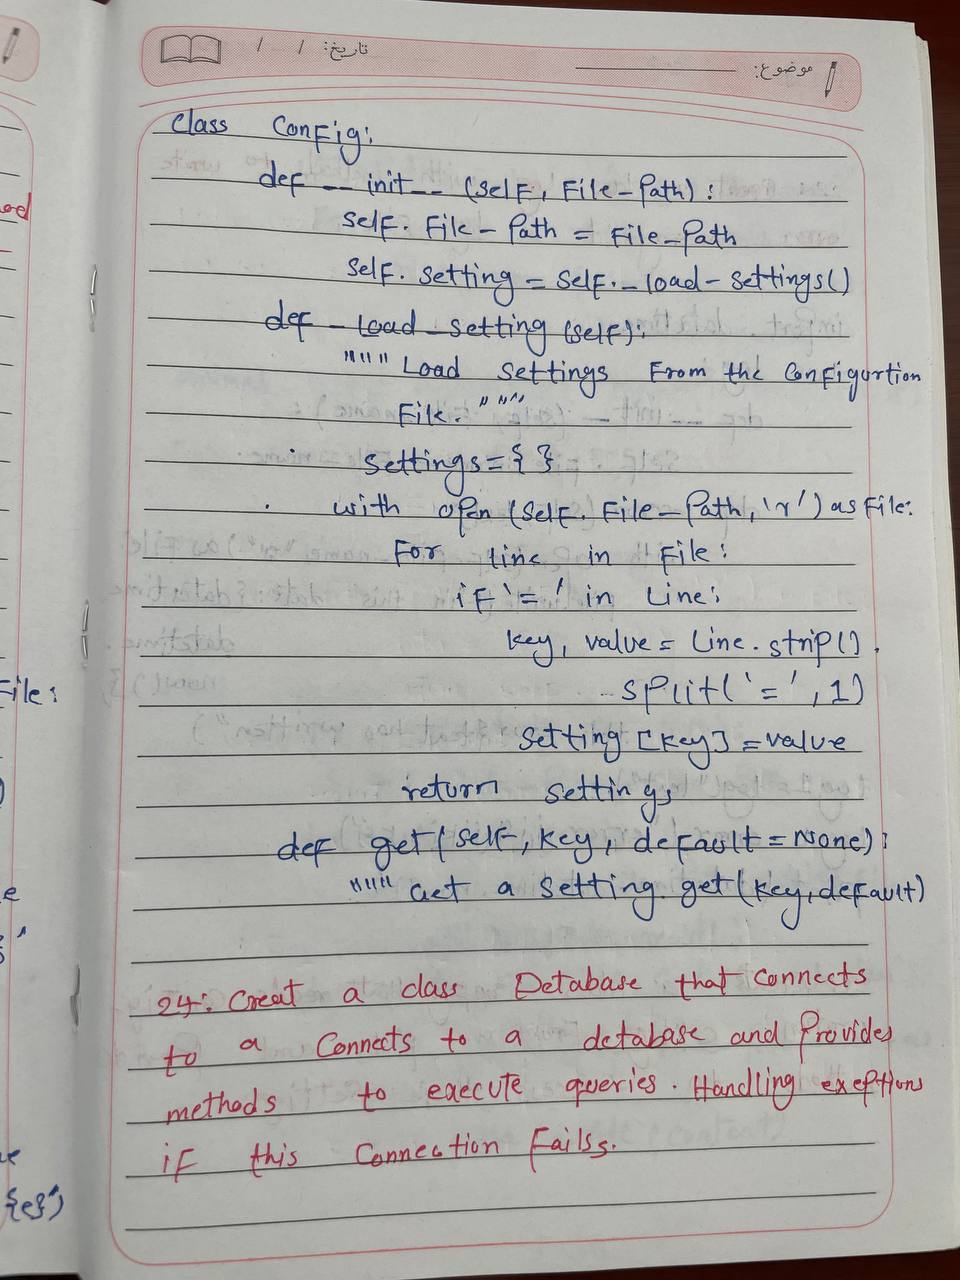 تاریخ: / /
موضوع:
Class Config:
def __init__ (self, File_Path):
self. File_Path = File_Path
self. setting = self._load_settings()
def _load_setting (self):
""" Load settings From the Configurtion
File. """
settings = { }
with open (self. File_Path, 'r') as File:
For line in File:
if '=' in Line:
key, value = Line. strip().
split('=', 1)
setting [key] = value
return settings
def get(self, key, default = None):
""" Get a setting. get(key, default)
24: Creat a class Detabase that connects
to a Connects to a detabase and Provides
methods to execute queries. Handling exeptions
if this Connection Failss.
File:
{e}")